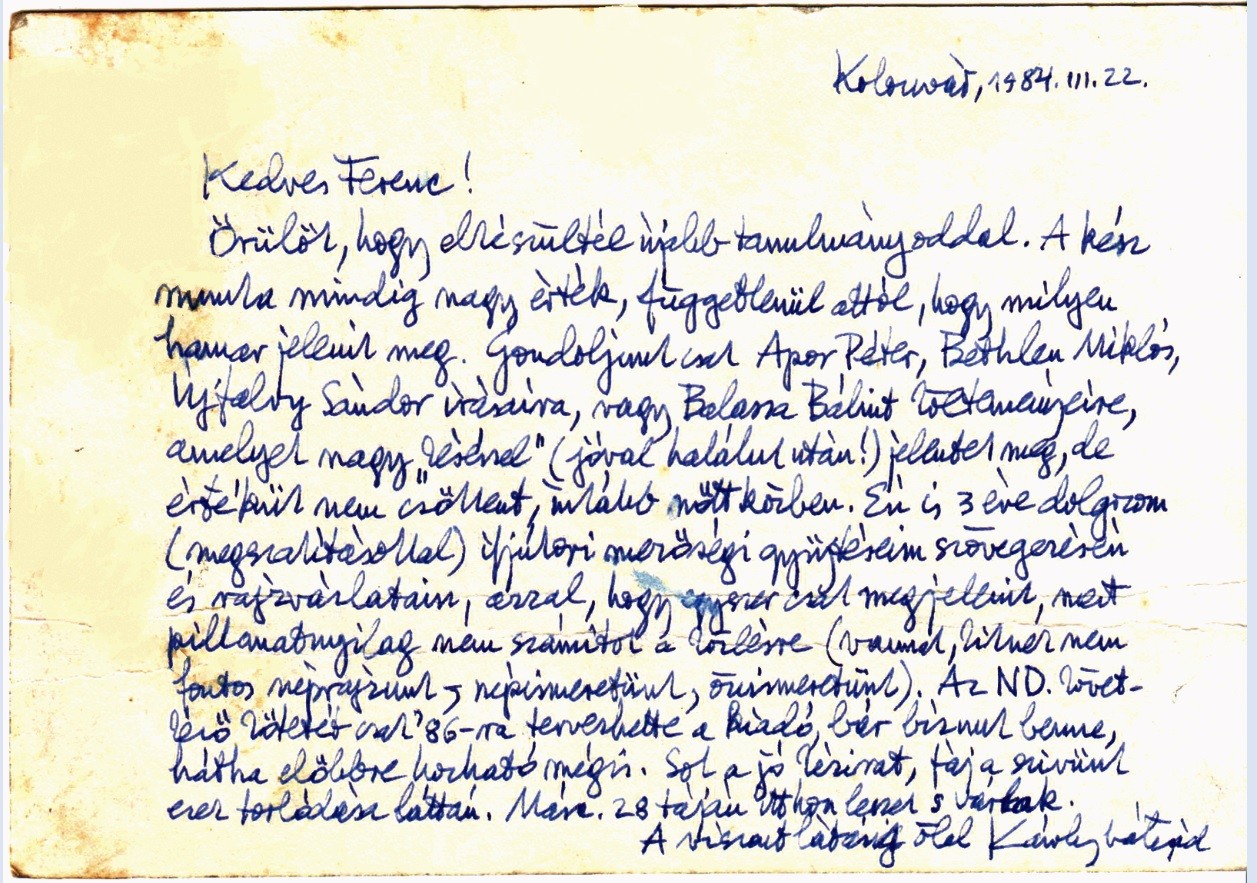 Kolozsvár, 1984. III. 22.
Kedves Ferenc!
Örülök, hogy elkészültél újabb tanulmányoddal. A kész
munka mindig nagy érték, függetlenül attól, hogy milyen
hamar jelenik meg. Gondoljunk csak Apor Péter, Bethlen Miklós,
Újfalvy Sándor írásaira, vagy Balassa Bálint költeményeire,
amelyek nagy „késéssel" (jóval haláluk után!) jelentek meg, de
értékük nem csökkent, inkább nőtt közben. Én is 3 éve dolgozom
(megszakításokkal) ifjúkori mezőségi gyűjtéseim szövegezésén
és rajzvázlatain, azzal, hogy egyszer csak megjelenik, mert
pillanatnyilag nem számítok a közlésre (vannak, kiknek nem
fontos néprajzunk, népismeretünk, önismeretünk). Az ND. követ-
kező kötetét csak '86-ra tervezhette a kiadó, bár bíznunk benne,
hátha előbbre hozható mégis. Sok a jó kézirat, fáj a szívünk
ezek torlódása láttán. Márc. 28 táján itthon leszek s várlak.
A viszontlátásig ölel Károly bátyád